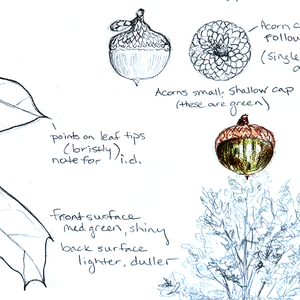 Acorn c
follow
(singl
a
Acorns small; shallow cap
(these are green)
points on leaf tips
(bristly)
note for i.d.
front surface
med green, shiny
back surface
lighter, duller